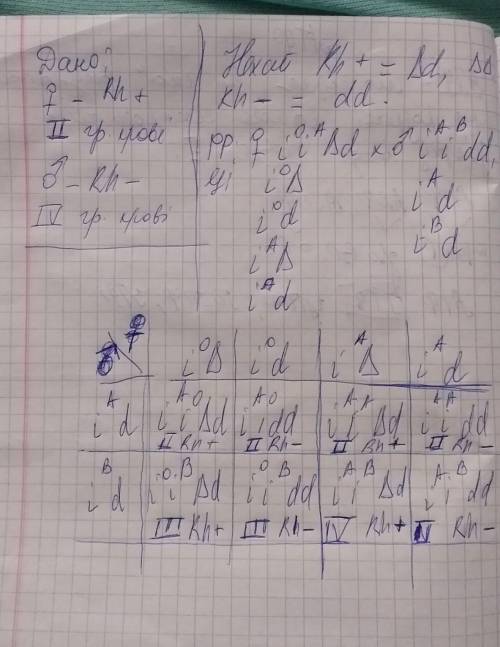 Дано:
♀ - Rh +
II гр. крові
♂ - Rh -
IV гр. крові
Нехай Rh + = Dd, DD
Rh - = dd.
PP: ♀ i^O i^A Dd × ♂ i^A i^B dd,
i^O D
i^O d
i^A D
i^A d
i^A d
i^B d
♂ \ ♀ i^O D i^O d i^A D i^A d
i^A d i^A i^O Dd i^A i^O dd i^A i^A Dd i^A i^A dd
II Rh+ II Rh- II Rh+ II Rh-
i^B d i^O i^B Dd i^O i^B dd i^A i^B Dd i^A i^B dd
III Rh+ III Rh- IV Rh+ Rh-